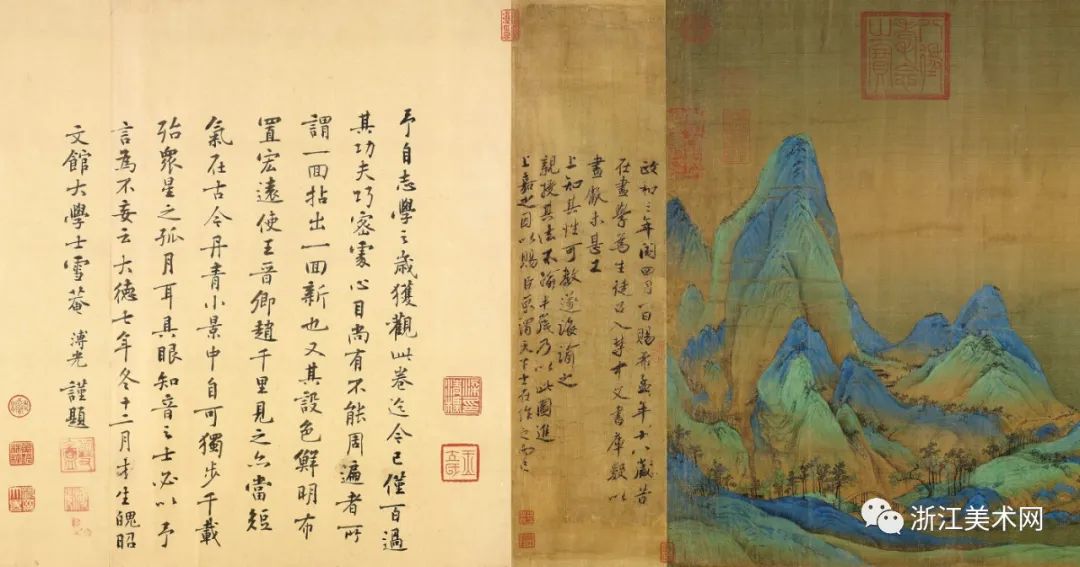 政和三年閏四月一日賜希孟年十八歲昔
在畫學為生徒召入禁中文書庫數以
畫獻未甚工
上知其性可教遂誨諭之
親授其法不踰半歲乃以此圖進
上嘉之因以賜臣京謂天下士在作之而已
予自志學之歲獲觀此卷迄今已僅百過
其功夫巧密處心目尚有不能周遍者所
謂一面拈出一面新也又其設色鮮明布
置宏遠使王晉卿趙千里見之亦當短
氣在古今丹青小景中自可獨步千載
殆衆星之孤月耳具眼知音之士必以予
言為不妄云大德七年冬十二月才生魄昭
文館大學士雪菴 溥光 謹題
浙江美术网